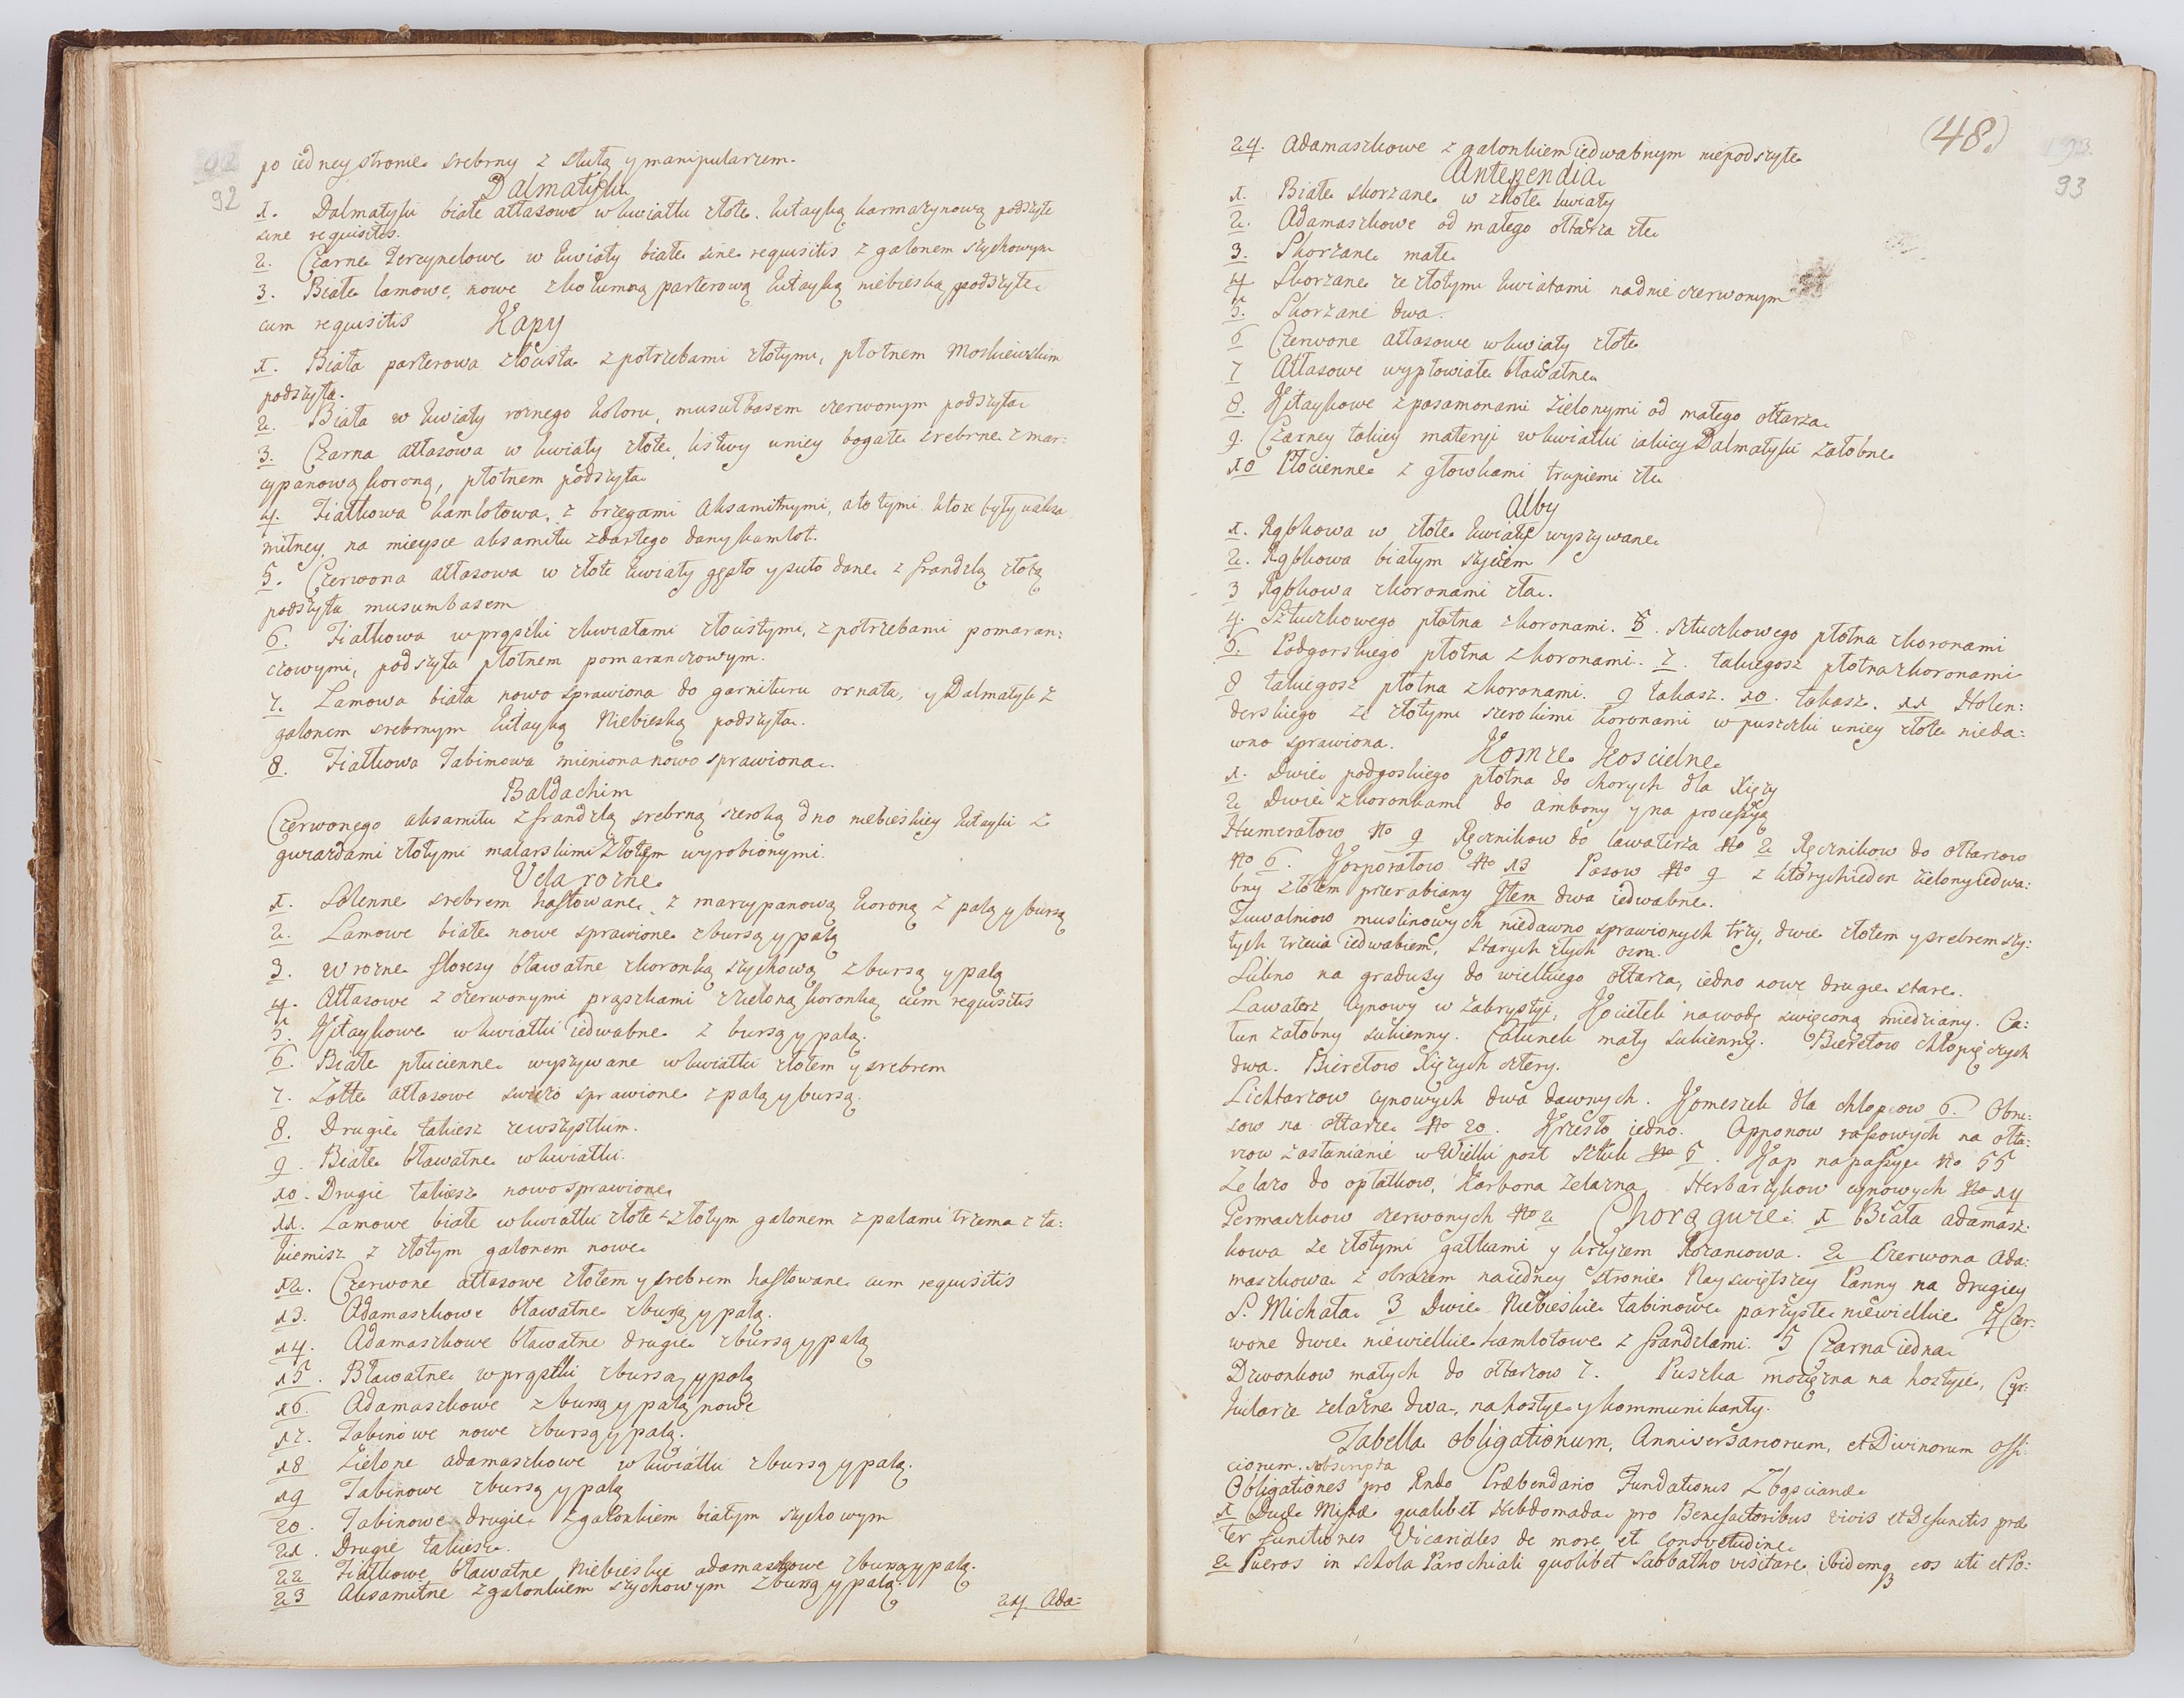 92
po iedney stronie srebrny z stułą y manipularzem.
Dalmatyki
1. Dalmatyki białe atłasowe w kwiatki złote, kitayką karmazynową podszyte
sine requisitis.
2. Czarne Terzynelowe w kwiaty białe sine requisitis z galonem szychowym
3. Białe lamowe, nowe z kolumną parterową kitayką niebieską podszyte
cum requisitis Kapy
1. Biała parterowa złocista z potrzebami złotymi, płotnem Moskiewskim
podszyta.
2. Biała w kwiaty rożnego koloru, musułbasem czerwonym podszyta
3. Czarna atłasowa w kwiaty złote, listwy uniey bogate srebrne z mar:
cypanową koroną, płotnem podszyta
4. Fiałkowa kamlotowa, z brzegami Aksamitnymi, a to tymi ktore były u aksa
mitney, na mieysce aksamitu zdartego dany kamlot.
5. Czerwona atłasowa w złote kwiaty gęsto y suto dane z frandzlą złotą
podszyta musumbasem
6. Fiałkowa w prążki z kwiatami złocistymi, z potrzebami pomaran:
czowymi, podszyta płotnem pomaranczowym.
7. Lamowa biała nowo sprawiona do garnituru ornata, y Dalmatyk z
galonem srebrnym kitayką Niebieską podszyta.
8. Fiałkowa Tabinowa mieniona nowo sprawiona.
Baldachim
Czerwonego aksamitu z frandzlą srebrną szeroką dno niebieskiey kitayki z
gwiazdami złotymi malarskimi złotem wyrobionymi.
Vela rożne
1. Solenne srebrem haftowane, z marcypanową koroną z palą y bursą
2. Lamowe białe nowe sprawione z bursą y palą
3. W rożne floresy bławatne z koronką szychową z bursą y palą
4. Atłasowe z czerwonymi prążkami z zieloną koronką cum requisitis
5. Kitaykowe w kwiatki iedwabne z bursą y palą.
6. Białe płucienne wyszywane w kwiatki złotem y srebrem
7. Zołte atłasowe swiezo sprawione z palą y bursą.
8. Drugie takiesz ze wszystkim.
9. Białe bławatne w kwiatki.
10. Drugie takiesz nowo sprawione
11. Lamowe białe w kwiatki złote z złotym galonem z palami trzema z ta:
kiemisz z złotym galonem nowe
12. Czerwone atłasowe złotem y srebrem haftowane cum requisitis
13. Adamaszkowe bławatne z bursą y palą.
14. Adamaszkowe bławatne drugie z bursą y palą
15. Bławatne w prążki z bursą y palą
16. Adamaszkowe z bursą y palą nowe
17. Tabinowe nowe z bursą y palą.
18 Zielone adamaszkowe w kwiatki z bursą y palą.
19 Tabinowe z bursą y palą
20. Tabinowe drugie z galonkiem białym szychowym
21. Drugie takiesz.
22 Fiałkowe bławatne Niebieskie adamaszkowe z bursą y palą.
23 Aksamitne z galonkiem szychowym z bursą y palą.
24 Ada:
(48.)
93
24. Adamaszkowe z galonkiem iedwabnym niepodszyte
Antependia
1. Białe skorzane w złote kwiaty
2. Adamaszkowe od małego ołtarza złe
3. Skorzane małe
4 Skorzane ze złotymi kwiatami na dnie czerwonym
5. Skorzane dwa.
6 Czerwone atłasowe w kwiaty złote
7 Atłasowe wypłowiałe bławatne
8. Kitaykowe z pasamonami zielonymi od małego ołtarza
9. Czarney takiey materyi w kwiatki iakiey Dalmatyki załobne
10 Płocienne z głowkami trupiemi złe
Alby
1. Rąbkowa w złote kwiaty wyszywane
2. Rąbkowa białym szyciem
3 Rąbkowa z koronami zła.
4. Sztuczkowego płotna z koronami. 5. Sztuczkowego płotna z koronami
6. Podgorskiego płotna z koronami. 7. takiegosz płotna z koronami
8 takiegosz płotna z koronami. 9 takasz. 10. takasz. 11 Holen:
derskiego ze złotymi szerokimi koronami w puszczki uniey złote nieda:
wno sprawiona. Komze Koscielne
1. Dwie podgoskiego płotna do chorych dla Xięży
2 Dwie z koronkami do ambony y na processyą
Humerałow No 9 Ręcznikow do lawaterza No 2 Ręcznikow do ołtarzow
No 6. Korporałow No 13 Pasow No 9 z ktorych ieden zielony iedwa:
bny złotem przerabiany Item dwa iedwabne.
Tuwalniow muslinowych niedawno sprawionych trzy, dwie złotem y srebrem szy:
tych trzecia iedwabiem, starych złych osm.
Sukno na gradusy do wielkiego ołtarza, iedno nowe drugie stare.
Lawaterz cynowy w zakrystyi, Kociełek na wodę swięconą miedziany. Ca:
łun załobny sukienny. Całunek mały sukienny. Bieretow chłopięczych
dwa. Bieretow Xięzych cztery.
Lichtarzow cynowych dwa dawnych. Komeszek dla chłopcow 6. Obru:
sow na ołtarze No 20. Krzesło iedno. Opponow rasowych na ołta:
rzow zasłanianie w Wielki post Sztuk No 5. Kap na passye No 55
Zelazo do opłatkow, Karbona zelazna. Herbarzykow cynowych No 14
Germaczkow czerwonych No 2 Chorągwie: 1 Biała adamasz:
kowa ze złotymi gałkami y krzyżem Rozancowa. 2 Czerwona Ada:
maszkowa z obrazem na iedney stronie Nayswiętszey Panny na drugiey
S. Michała 3 Dwie Niebieskie tabinowe parzyste niewielkie 4 Czer:
wone dwie niewielkie kamlotowe z frandzlami. 5 Czarna iedna
Dzwonkow małych do ołtarzow 7. Puszka mosięzna na hostye, Cyr:
kularze zelazne dwa, na hostye y kommunikanty.
Tabella obligationum, Anniversariorum, et Divinorum offi:
ciorum. subscripta
Obligationes pro Rndo Præbendario Fundationis Zbąsciana
1 Duæ Missæ qualibet Hebdomada pro Benefactoribus vivis et Defunctis præ
ter functiones Vicariales de more et consvetudine
2 Pueros in schola Parochiali quolibet Sabbatho visitare ibidemq eos uti et Po: